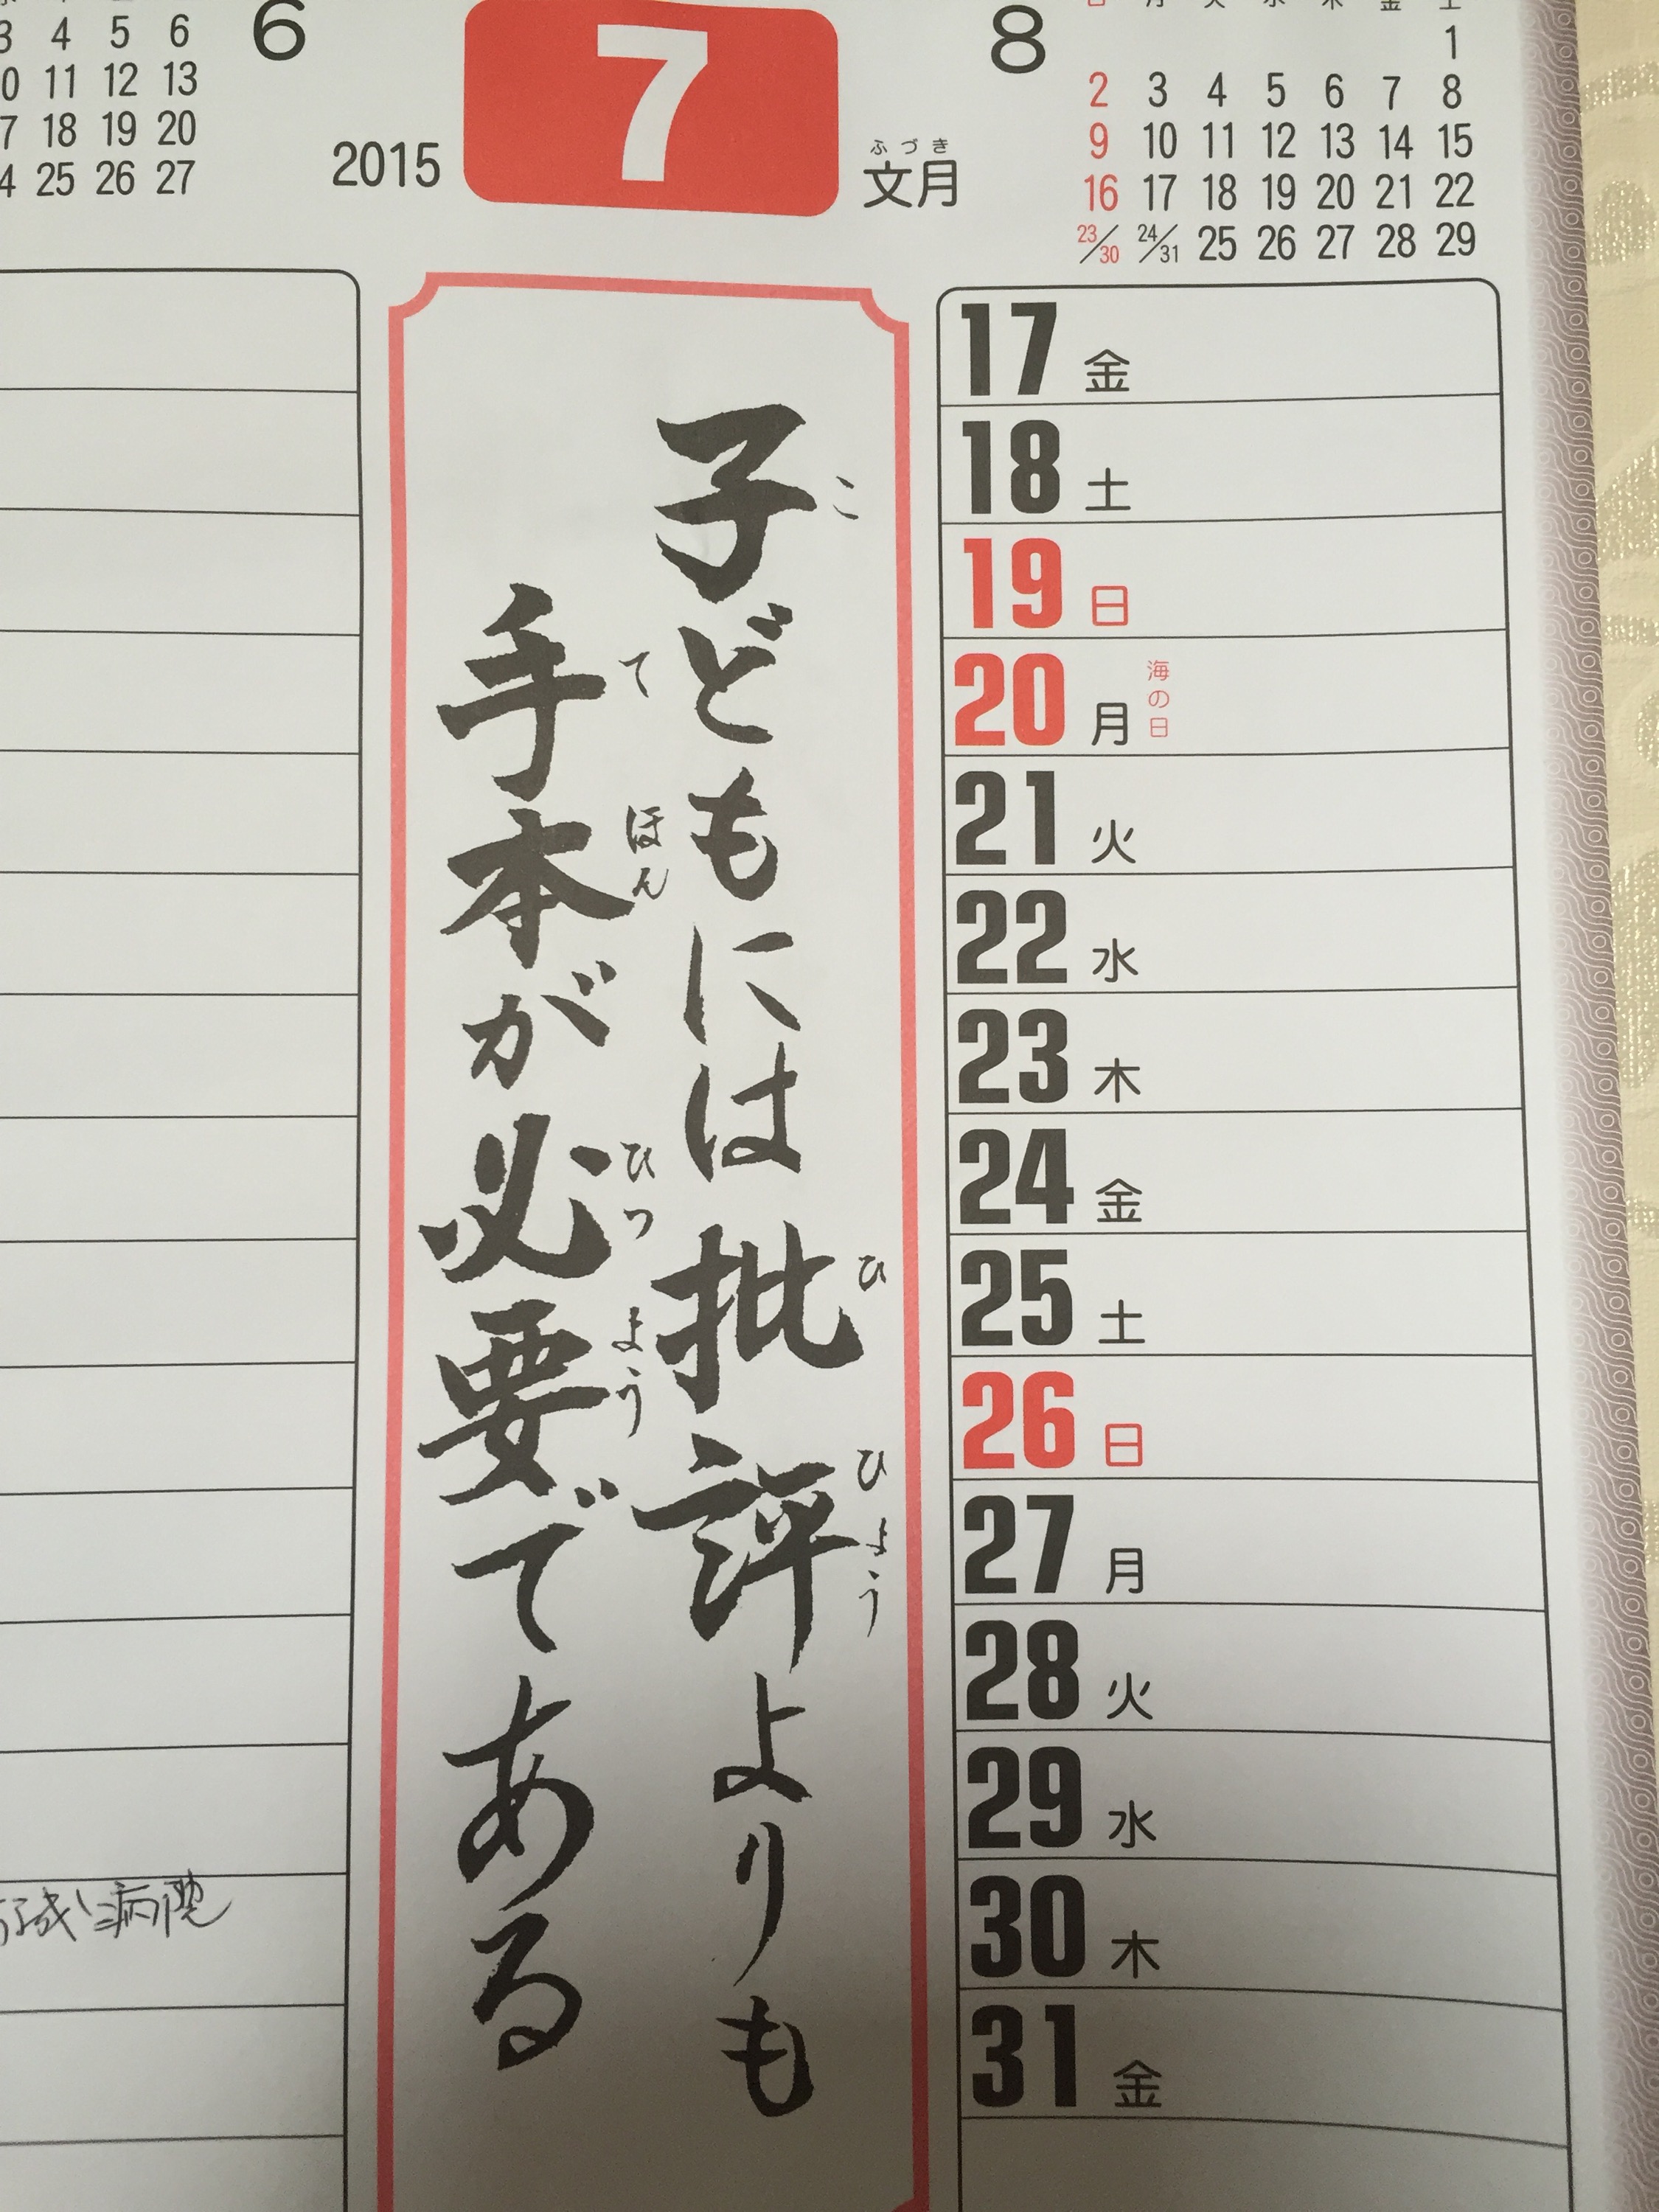 6
3 4 5 6
0 11 12 13
7 18 19 20
4 25 26 27
2015
7
ふづき
文月
8
日 月 火 水 木 金 土
1
2 3 4 5 6 7 8
9 10 11 12 13 14 15
16 17 18 19 20 21 22
23/30 24/31 25 26 27 28 29
17 金
18 土
19 日
20 月 海の日
21 火
22 水
23 木
24 金
25 土
26 日
27 月
28 火
29 水
30 木
31 金
こ ひ ひょう
子どもには批評よりも
て ほん ひつ よう
手本が必要である
病院